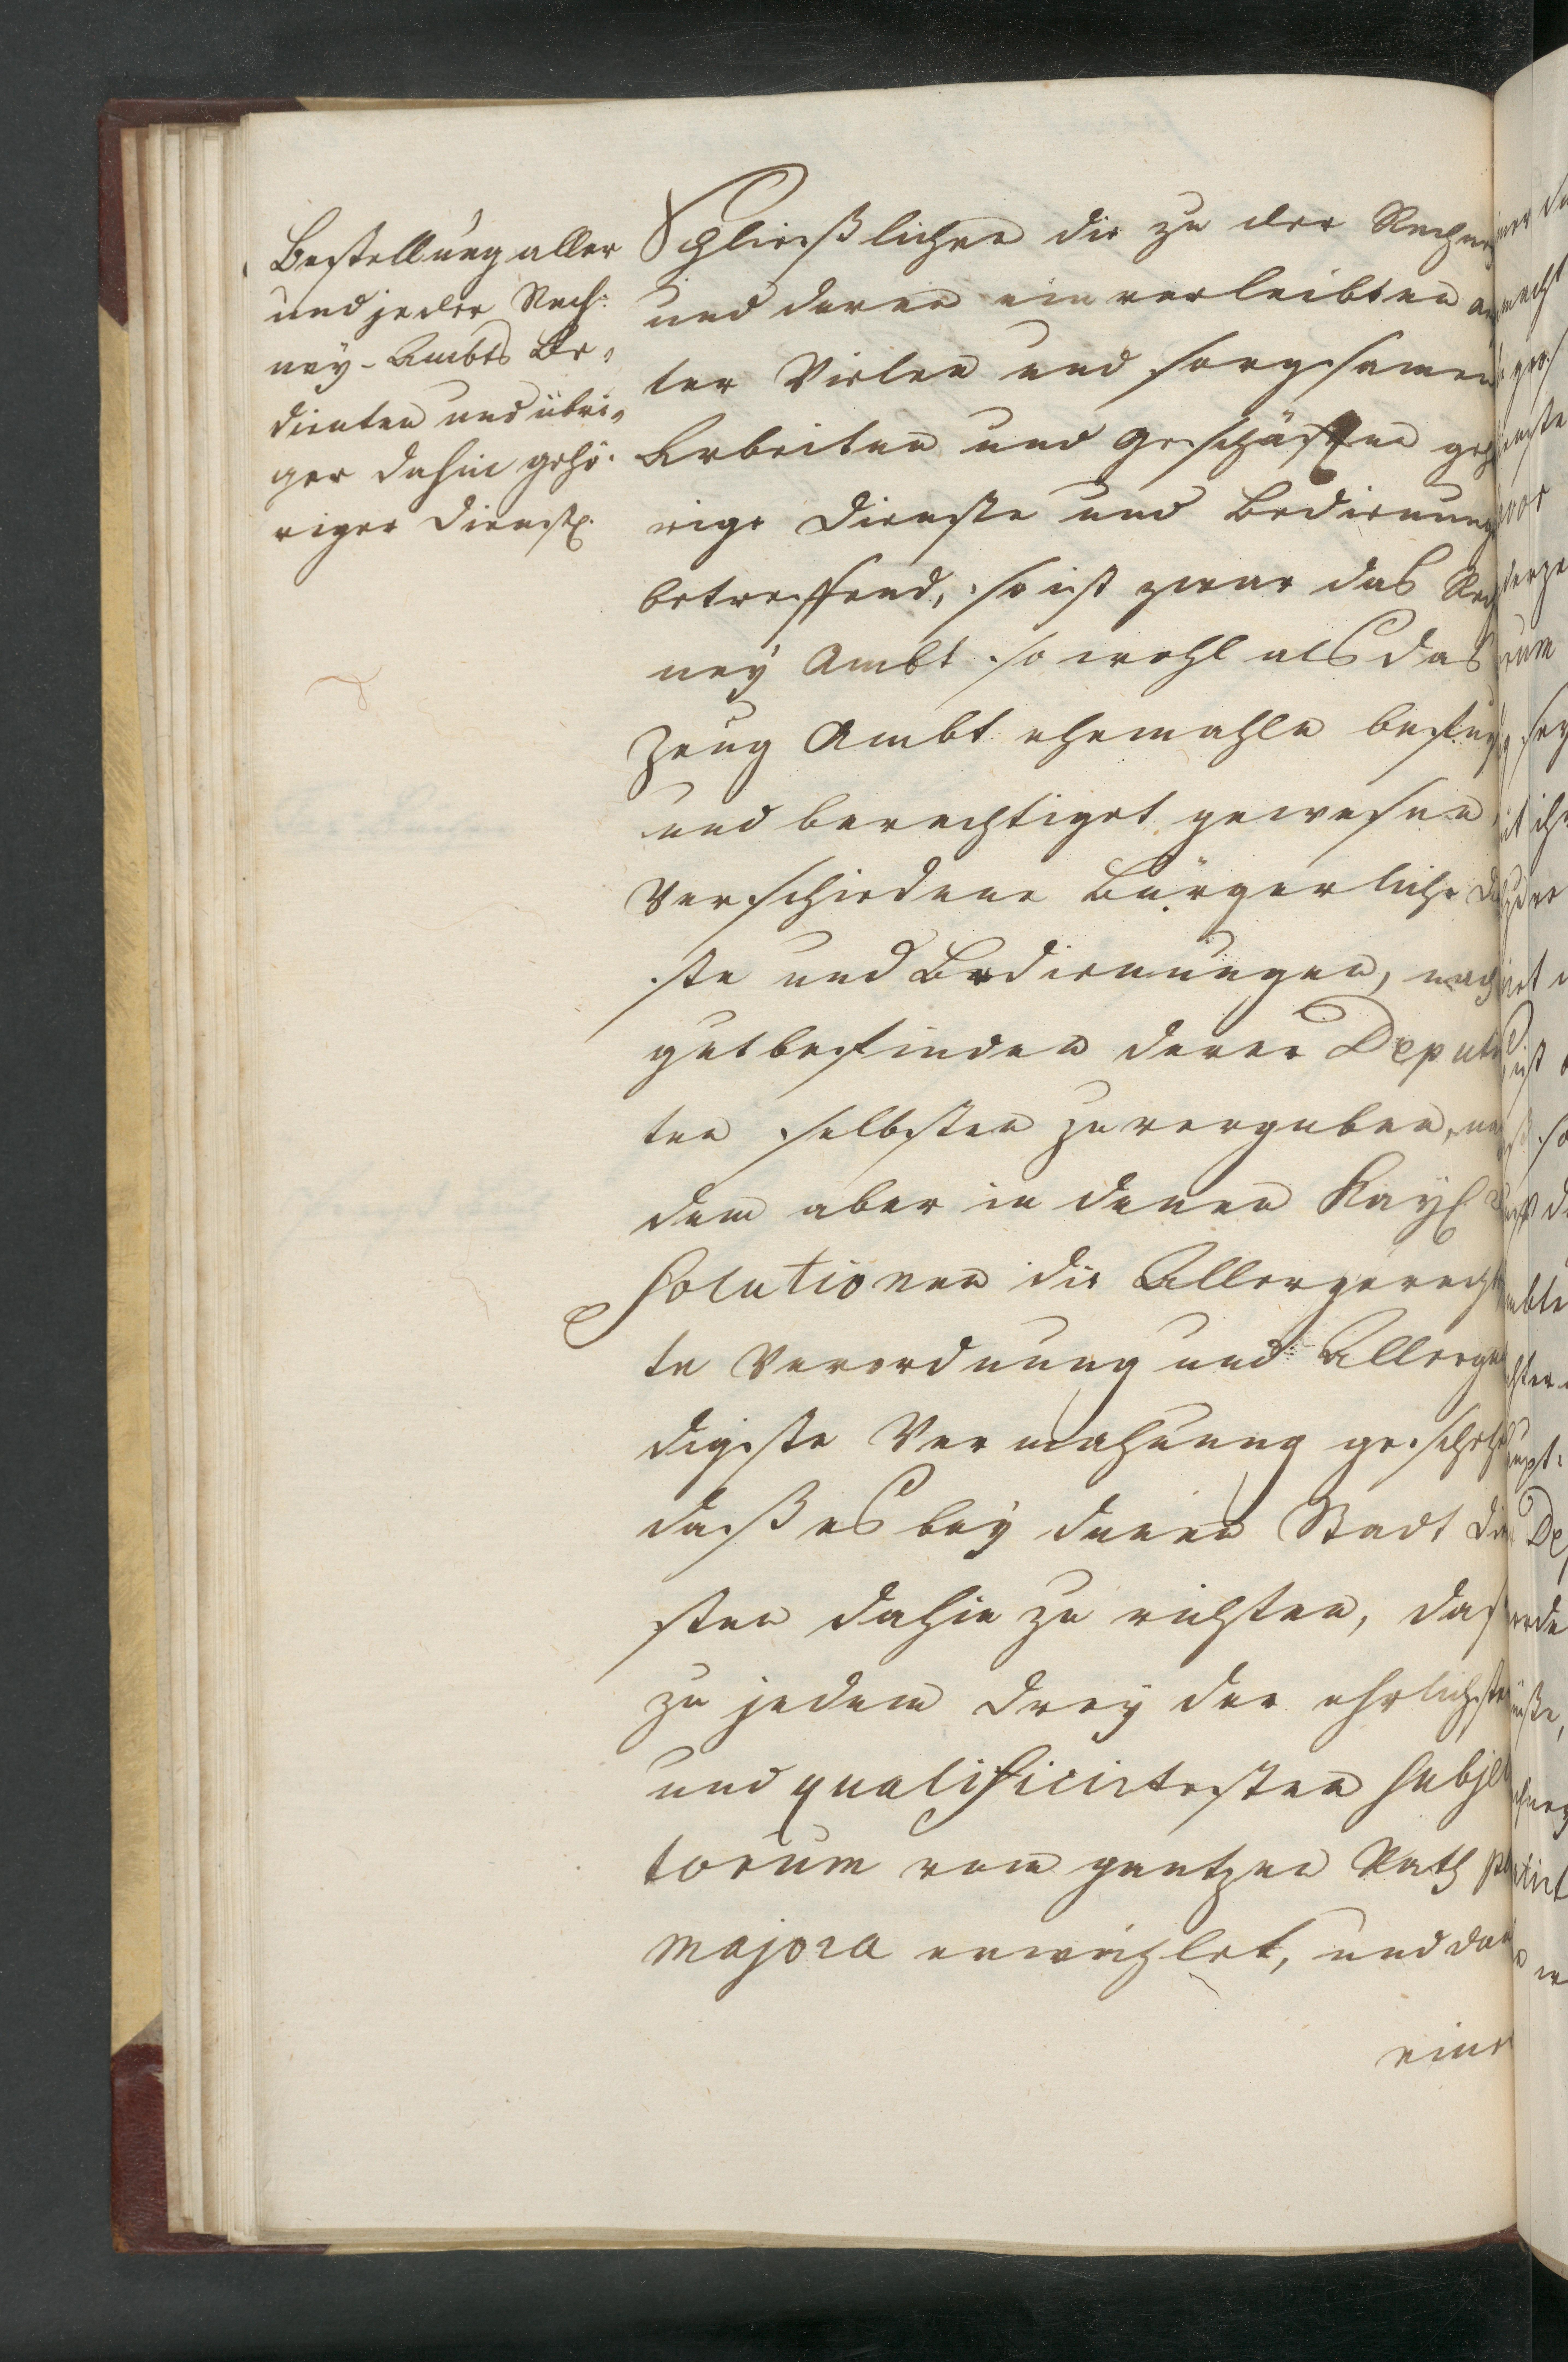 Bestellung aller
und jeder Rech-
ney-Ambts Be-
dienten und übri-
ger dahin gehö-
riger Dienste.
Schließlichen die zu der Rechney
und deren einverleibten am
ter Vielen und sorgsamen
Arbeiten und Geschäfften gehö
rige Dienste und Bedienung
betreffend, so ist zwar das Rech
ney Ambt so wohl als das
Zeug Ambt ehemahls befugt
und berechtiget gewesen
Verschiedene Bürgerliche Di
ste und Bedienungen, nach
gutbefinden derer Deputir
ten selbsten zu vergeben, nach
dem aber in denen Kayl. Re
solutionen die Allergerechtes
te Verordnung und Allergnä
digste Vermahnung geschehen
daß es bey denen Stadt Dien
sten dahin zu richten, daß
zu jedem drey der ehrlichsten
und qualificirtesten Subjec
torum vom gantzen Rath per
majora erwehlet, und dar
eine